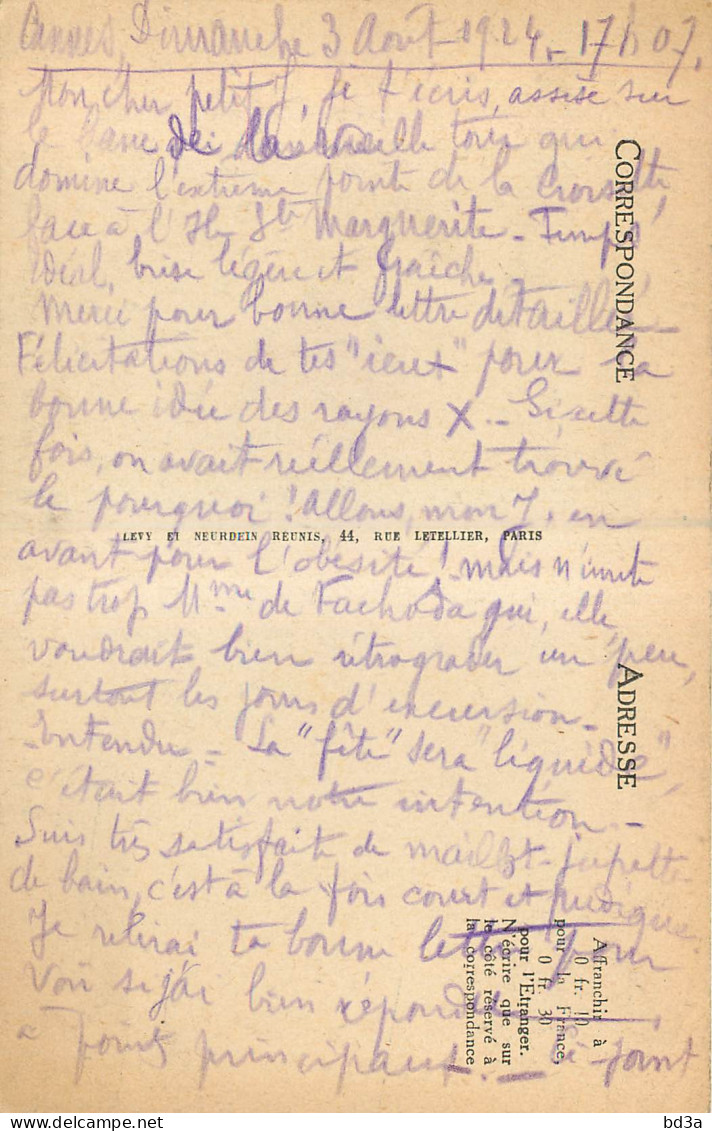 Cannes, Dimanche 3 Août 1924. - 17h07.
Mon cher petit J. Je t'écris, assise sur
le banc de la vieille tour qui
domine l'extrême pointe de la Croisette,
face à l'Ile Ste Marguerite - Temps
idéal, brise légère et fraîche -
Merci pour bonne lettre détaillée
Félicitations de tes "ieux" pour ta
bonne idée des rayons X - Si cette
fois, on avait réellement trouvé
le pourquoi ! Allons, mon J. en
avant pour l'obésité ! mais n'imite
pas trop Mme de Fachoda qui, elle,
voudrait bien rétrograder un peu,
surtout les jours d'excursion -
Entendu - La "fête" sera "liquidée",
c'était bien notre intention -
Suis très satisfaite de maillot-jupette
de bain, c'est à la fois court et pudique
Je relirai ta bonne lettre pour
voir si j'ai bien répondu
à points principaux. - Ci-joint
CORRESPONDANCE
ADRESSE
LEVY ET NEURDEIN RÉUNIS, 44, RUE LETELLIER, PARIS
Affranchir à
0 fr. 10
pour la France,
0 fr. 30
pour l'Etranger.
N'écrire que sur
le côté réservé à
la correspondance
bd3a